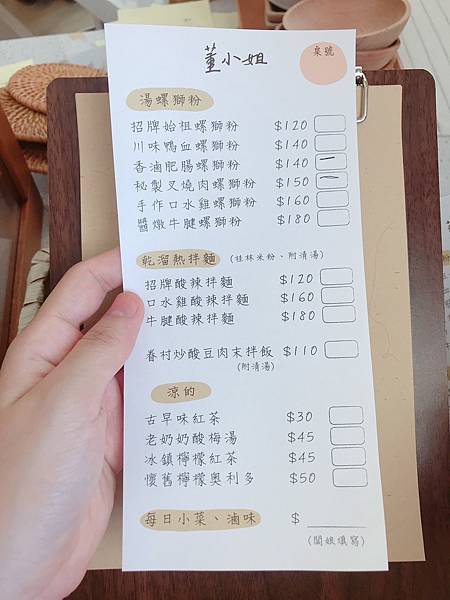 董小姐
桌號
湯螺獅粉
招牌始祖螺獅粉 $120
川味鴨血螺獅粉 $140
香滷肥腸螺獅粉 $140
秘製叉燒肉螺獅粉 $150
手作口水雞螺獅粉 $160
醬燉牛腱螺獅粉 $180
乾溜熱拌麵 (桂林米粉、附清湯)
招牌酸辣拌麵 $120
口水雞酸辣拌麵 $160
牛腱酸辣拌麵 $180
眷村炒酸豆肉末拌飯 $110
(附清湯)
涼的
古早味紅茶 $30
老奶奶酸梅湯 $45
冰鎮檸檬紅茶 $45
懷舊檸檬奧利多 $50
每日小菜、滷味 $
(闆娘填寫)